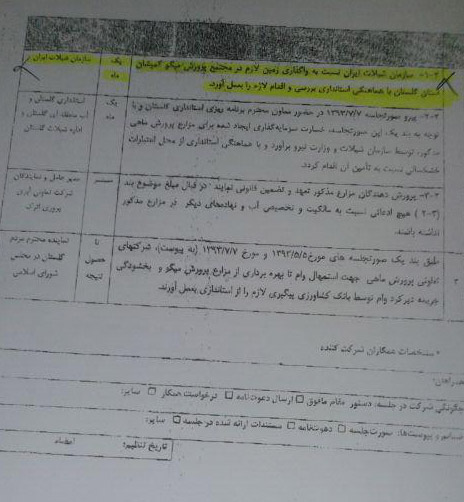 ۲-۱- سازمان شیلات ایران نسبت به واگذاری زمین لازم در مجتمع پرورش میگو گمیشان
استان گلستان با هماهنگی استانداری بررسی و اقدام لازم را بعمل آورد.
سازمان شیلات ایران
یک
ماه
۲-۲- پیرو صورتجلسه ۱۳۹۳/۷/۷ در حضور معاون محترم برنامه ریزی استانداری گلستان و با
توجه به بند یک این صورتجلسه، خسارت سرمایه‌گذاری ایجاد شده برای مزارع پرورش ماهی
مذکور، توسط سازمان شیلات و وزارت نیرو برآورد و با هماهنگی استانداری از محل اعتبارات
خشکسالی نسبت به تأمین آن اقدام گردد.
یک
ماه
استانداری گلستان و
آب منطقه ای گلستان و
اداره شیلات گلستان
۲-۳- پرورش دهندگان مزارع مذکور تعهد و تضمین قانونی نمایند در قبال مبلغ موضوع بند
(۲-۲) هیچ ادعائی نسبت به مالکیت و تخصیص آب و نهادهای دیگر در مزارع مذکور
نداشته باشند.
مدیر عامل و نمایندگان
شرکت تعاونی آبزی
پروری اترک
۳
طبق بند یک صورتجلسه های مورخ ۱۳۹۲/۵/۵ و مورخ ۱۳۹۳/۷/۷ (به پیوست)، شرکتهای
تعاونی پرورش ماهی جهت استمهال وام تا بهره برداری از مزارع پرورش میگو و بخشودگی
جریمه دیرکرد وام توسط بانک کشاورزی پیگیری لازم را از استانداری بعمل آورند.
تا
حصول
نتیجه
نماینده محترم مردم
گلستان در مجلس
شورای اسلامی
* مشخصات همکاران شرکت کننده
همراهان:
چگونگی شرکت در جلسه: دستور مقام مافوق □ ارسال دعوت‌نامه □ درخواست همکار □ سایر:
ضمائم و پیوست‌ها: صورت‌جلسه □ دعوتنامه □ مستندات ارائه شده در جلسه □ سایر:
تاریخ تنظیم:
امضاء